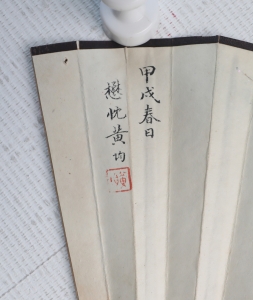 甲戌春日
懋忱黄均